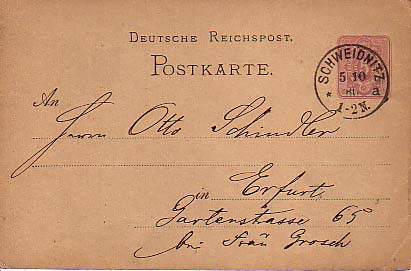 DEUTSCHE REICHSPOST.
POSTKARTE.
SCHWEIDNITZ
5 10
81 a
* 1-2N.
An
Herrn Otto Schindler
in Erfurt
Gartenstrasse 65
bei Frau Grosch